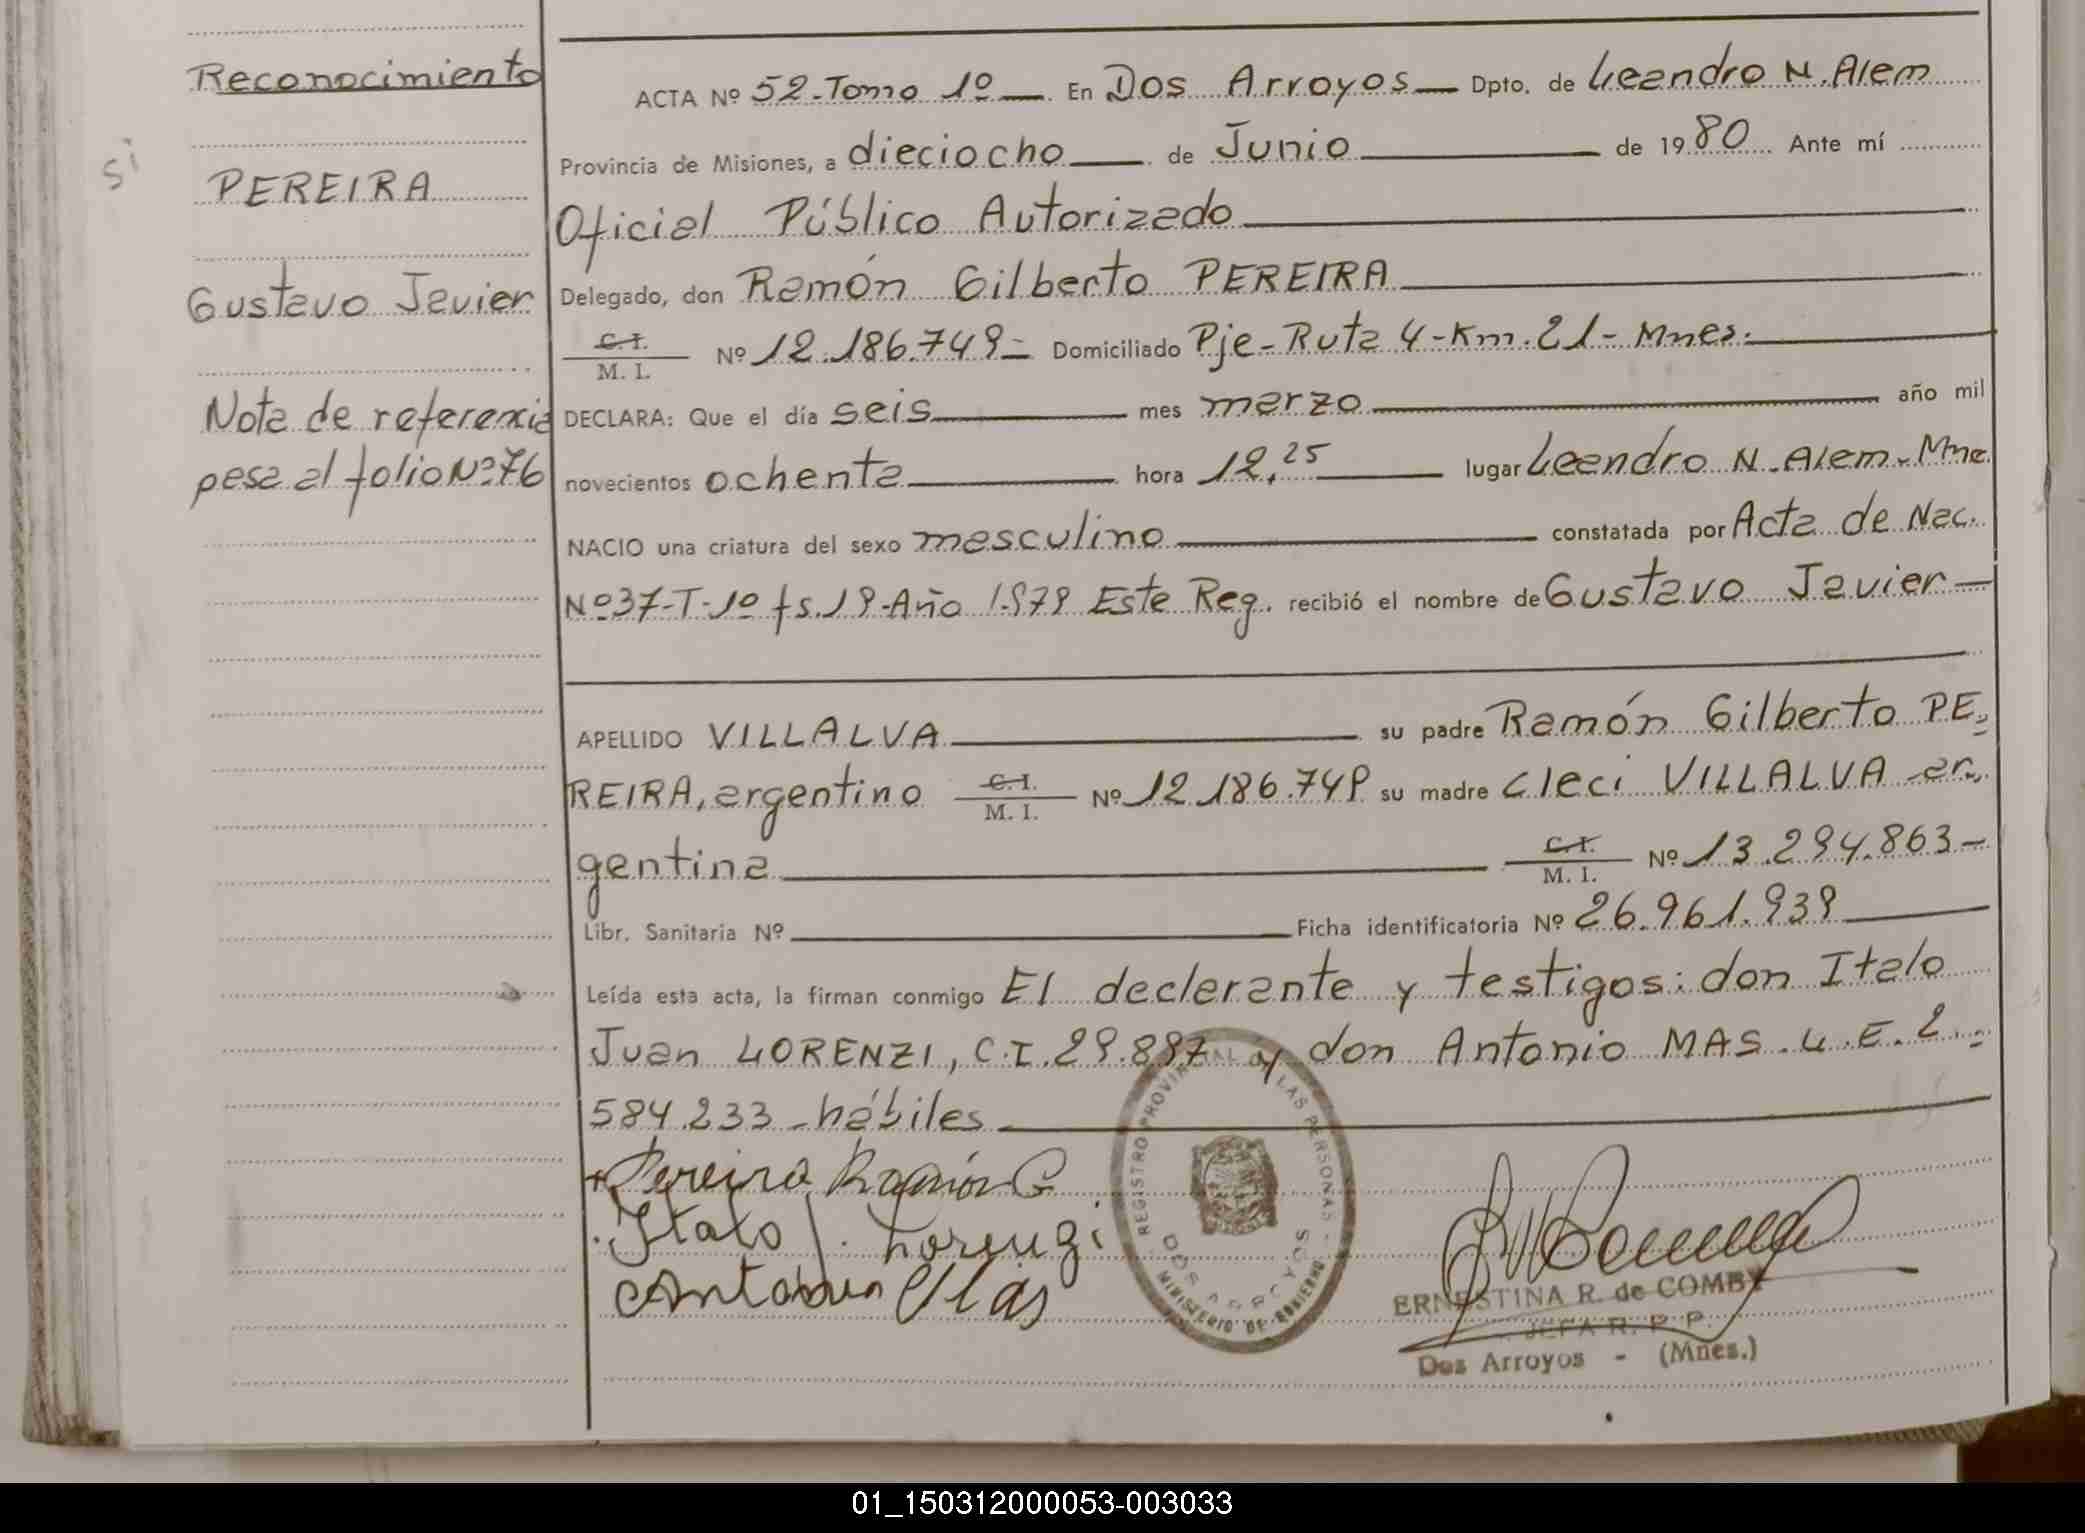 Reconocimiento
si
PEREIRA
Gustavo Javier
Nota de referencia
pasa al folio Nº 76
ACTA Nº 52-Tomo 1º — En Dos Arroyos — Dpto. de Leandro N. Alem
Provincia de Misiones, a dieciocho — de Junio — de 1980 Ante mí
Oficial Público Autorizado
Delegado, don Ramón Gilberto PEREIRA
C.I. M. I. Nº 12.186.749- Domiciliado Pje-Ruta 4-Km.21-Mnes.
DECLARA: Que el día seis — mes marzo — año mil
novecientos ochenta — hora 12,25 — lugar Leandro N. Alem-Mne
NACIO una criatura del sexo masculino — constatada por Acta de Nac.
Nº37-T-1º fs.19-Año 1.979 Este Reg. recibió el nombre de Gustavo Javier —
APELLIDO VILLALVA — su padre Ramón Gilberto PE-
REIRA, argentino C.I. M. I. Nº 12.186.749 su madre Cleci VILLALVA ar-
gentina — C.I. M. I. Nº 13.294.863-
Libr. Sanitaria Nº — Ficha identificatoria Nº 26.961.939
Leída esta acta, la firman conmigo El declarante y testigos: don Italo
Juan LORENZI, C.I. 29.897 y don Antonio MAS. L.E. 2.-
584.233-hábiles
Pereira Ramón G
Italo J. Lorenzi
Antonio Mas
REGISTRO PROVINCIAL DE LAS PERSONAS
DOS ARROYOS
MINISTERIO DE GOBIERNO
ERNESTINA R. de COMBY
JEFA R. P. P.
Dos Arroyos - (Mnes.)
01_150312000053-003033